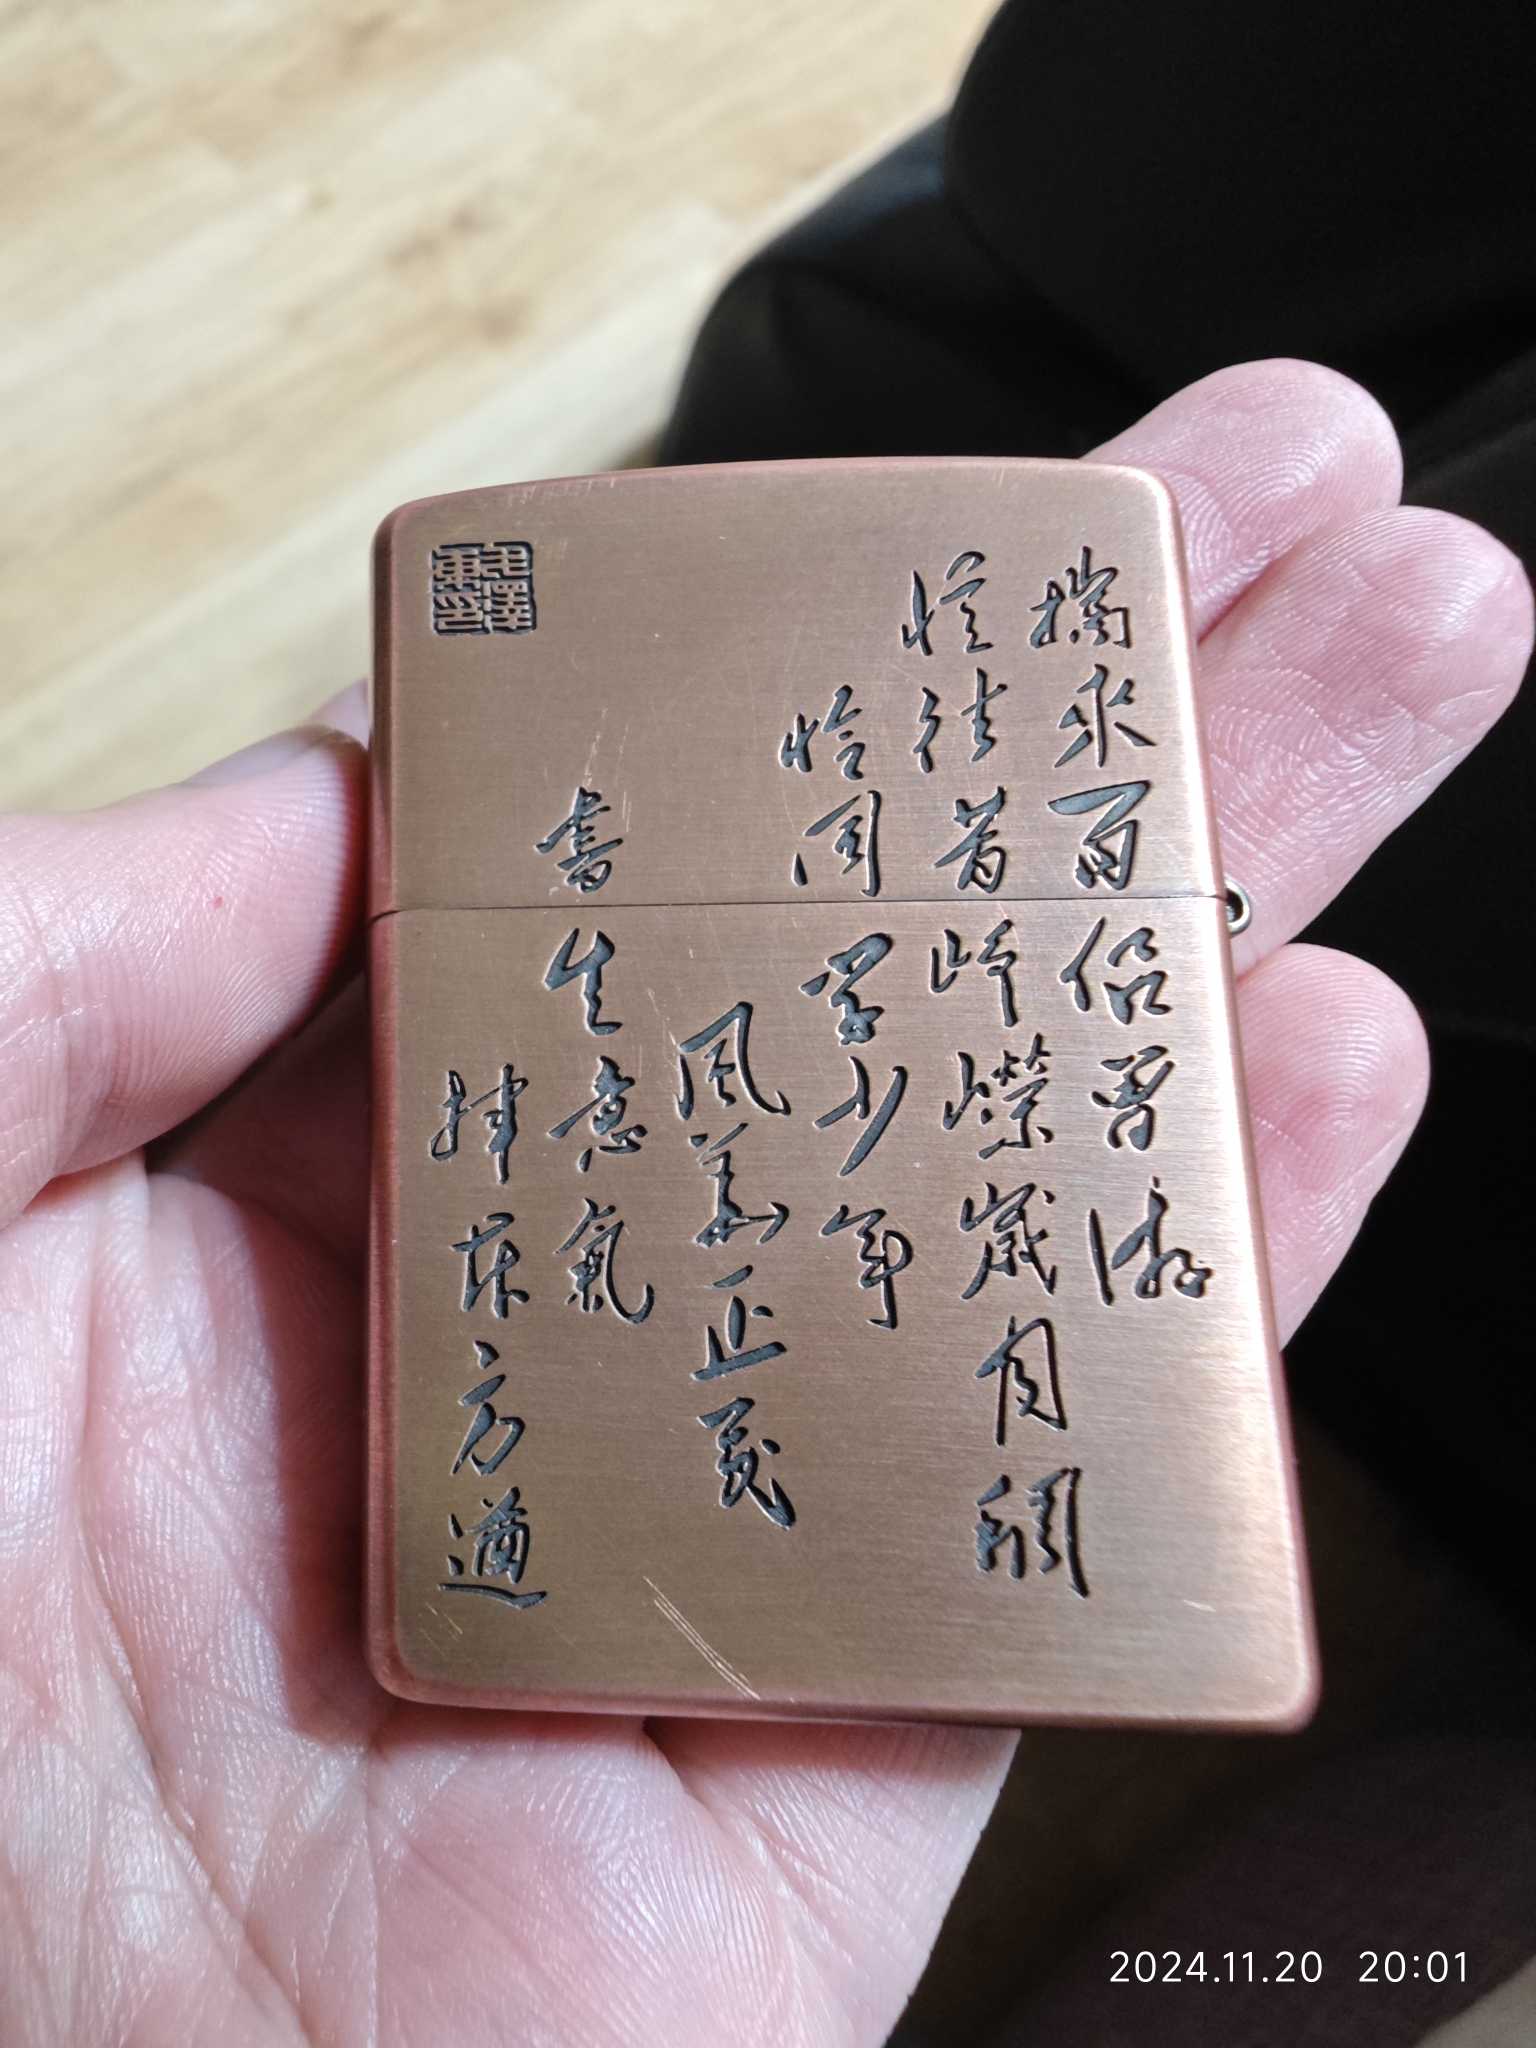 携來百侣曾游
憶往昔崢嶸歲月稠
恰同學少年
風華正茂
書生意氣
揮斥方遒
毛澤東印
2024.11.20 20:01